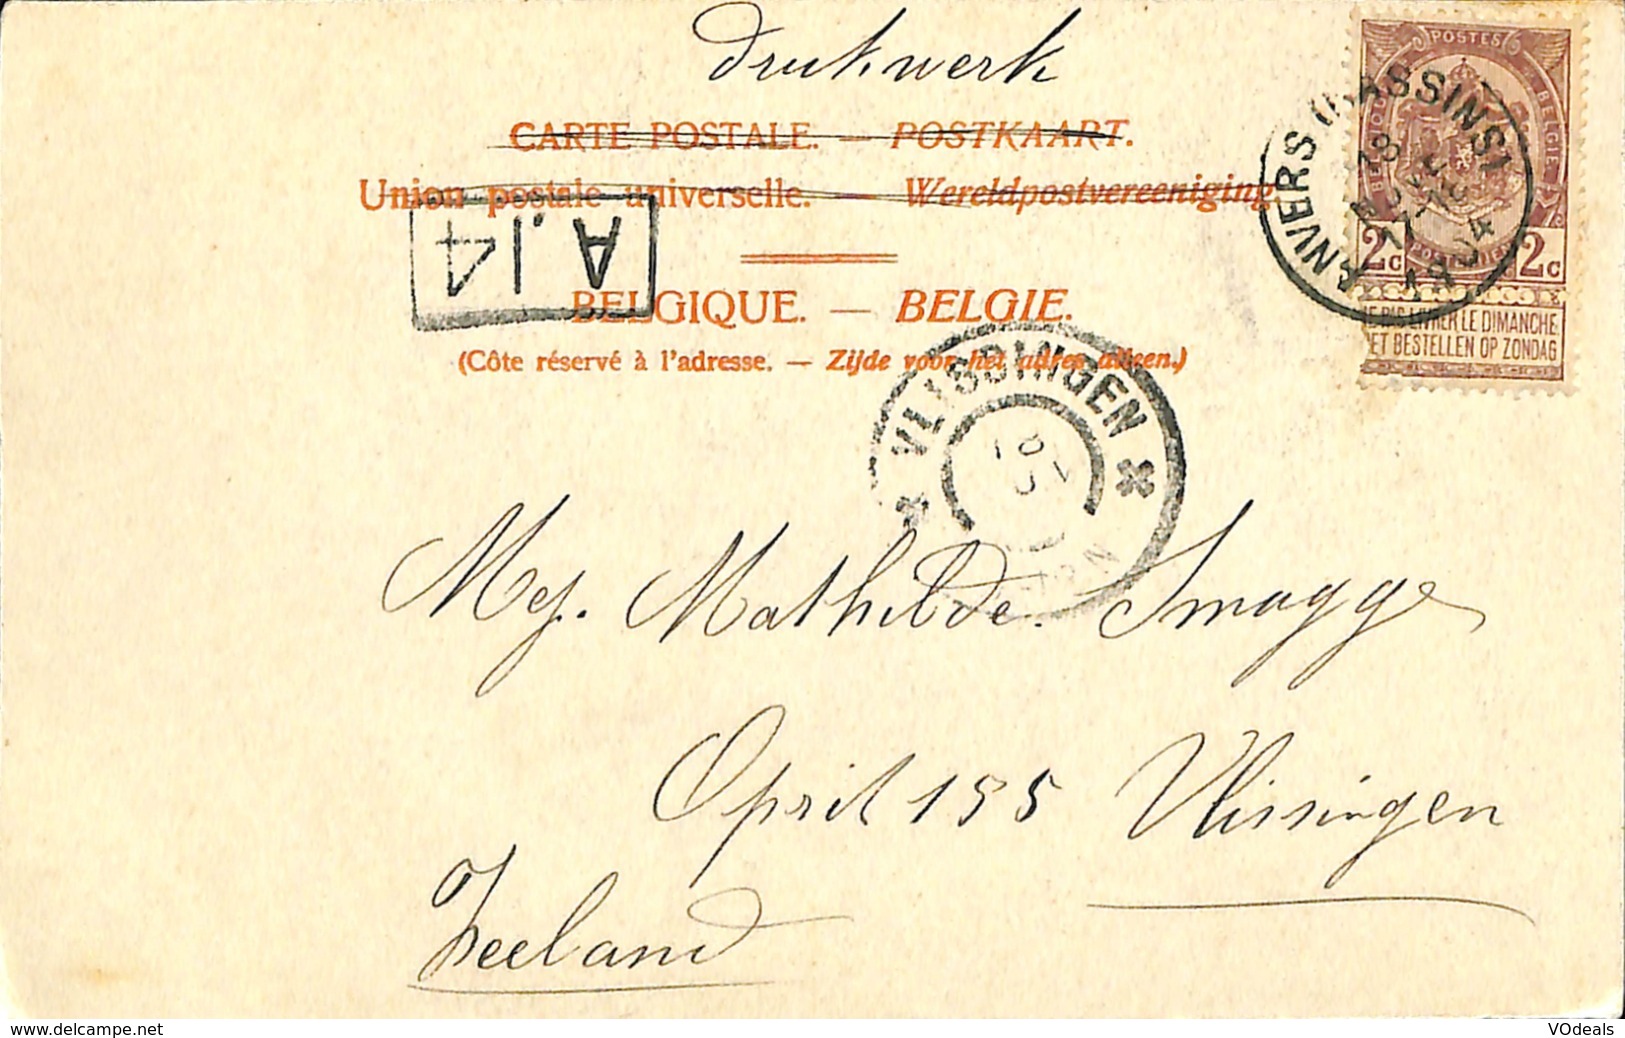 Drukwerk
CARTE POSTALE. — POSTKAART.
Union postale universelle. — Wereldpostvereeniging
BELGIQUE. — BELGIE.
(Côte réservé à l'adresse. — Zijde voor het adres alleen.)
A.14
POSTES
BELGIE
2c 2c
LE DIMANCHE
ET BESTELLEN OP ZONDAG
ANVERS (BASSINS)
18
1904
VLISSINGEN
Mej. Mathilde Smagge
Opril 155 Vlissingen
Zeeland
www.delcampe.net
VOdeals